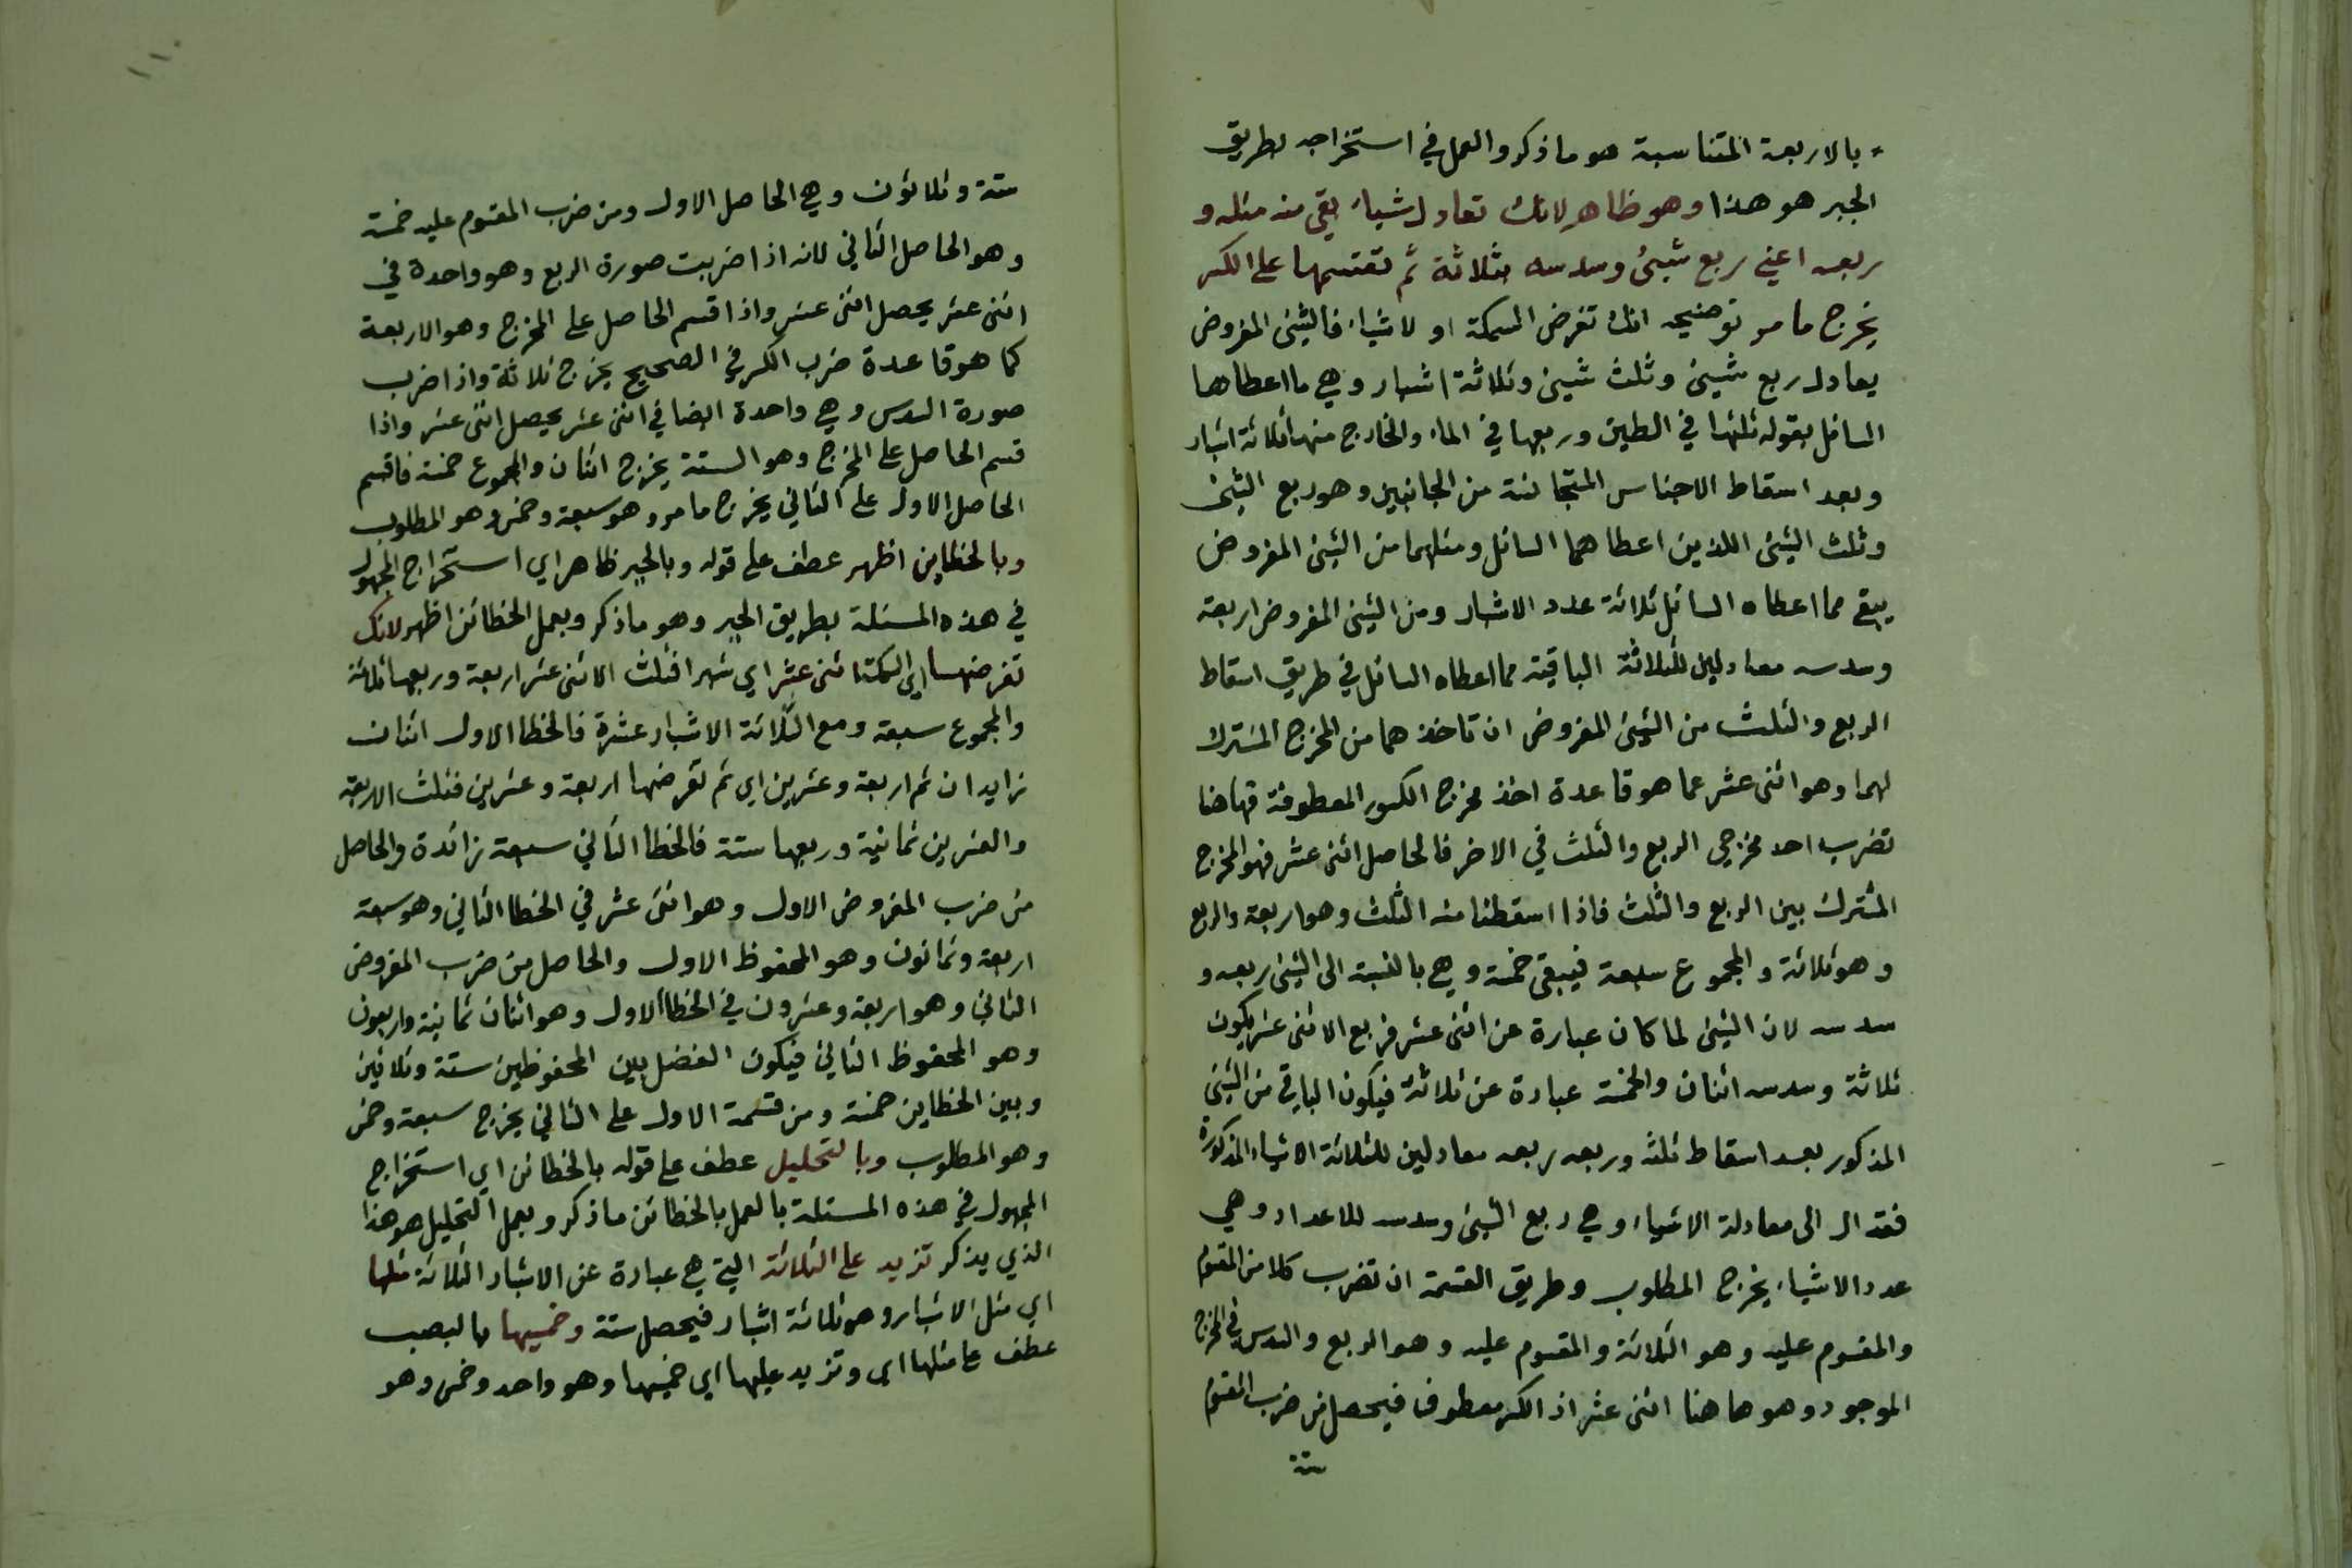 بالاربعة المتناسبة هو ما ذكر والعمل في استخراجه بطريق
الجبر هو هذا وهو ظاهر لانك تعادل شياء بقي منه مثله و
ربعه اعني ربع شيئ وسدسه بثلاثة ثم تقسمها على الكسر
يخرج ما مر توضيحه انك تفرض السمكة اولا شياء فالشئ المفروض
يعادل ربع شيئ وثلث شيئ وثلاثة اشبار وهي ما اعطاها
السائل بقوله ثلثها في الطين وربعها في الماء والخارج منها ثلاثة اشبار
وبعد اسقاط الاجناس المتجانسة من الجانبين وهو ربع الشئ
وثلث الشئ اللذين اعطاهما السائل ومثلهما من الشئ المفروض
يبقى مما اعطاه السائل ثلاثة عدد الاشبار ومن الشئ المفروض اربعة
وسدسه معادلين للثلاثة الباقية مما اعطاه السائل في طريق اسقاط
الربع والثلث من الشئ المفروض ان تاخذهما من المخرج المشترك
لهما وهو اثنى عشر عما هو قاعدة اخذ مخرج الكسور المعطوفة فهاهنا
تضرب احد مخرجي الربع والثلث في الاخر فالحاصل اثنى عشر فهو المخرج
المشترك بين الربع والثلث فاذا اسقطنا منه الثلث وهو اربعة والربع
وهو ثلاثة والمجموع سبعة فيبقى خمسة وهي بالنسبة الى الشئ ربعه و
سدسه لان الشئ لما كان عبارة عن اثنى عشر فربع الاثنى عشر يكون
ثلاثة وسدسه اثنان والخمسة عبارة عن ثلاثة فيكون الباقي من الشئ
المذكور بعد اسقاط ثلثه وربعه ربعه معادلين للثلاثة الاشياء المذكورة
فقد ال الى معادلة الاشياء وهي ربع الشئ وسدسه للاعداد وهي
عدد الاشياء يخرج المطلوب وطريق القسمة ان تضرب كلا من المقسوم
والمقسوم عليه وهو الثلاثة والمقسوم عليه وهو الربع والسدس في المخرج
الموجود وهو هاهنا اثنى عشر اذ الكسر معطوف فيحصل من ضرب المقسوم
ستة
ستة وثلاثون وهي الحاصل الاول ومن ضرب المقسوم عليه خمسة
وهو الحاصل الثاني لانه اذا ضربت صورة الربع وهو واحدة في
اثنى عشر يحصل اثنى عشر واذا قسم الحاصل على المخرج وهو الاربعة
كما هو قاعدة ضرب الكسر في الصحيح يخرج ثلاثة واذا ضرب
صورة السدس وهي واحدة ايضا في اثنى عشر يحصل اثنى عشر واذا
قسم الحاصل على المخرج وهو الستة يخرج اثنان والمجموع خمسة فاقسم
الحاصل الاول على الثاني يخرج ما مر وهو سبعة وخمس وهو المطلوب
وبالخطاين اظهر عطف على قوله وبالجبر ظاهر اي استخراج المجهول
في هذه المسئلة بطريق الجبر وهو ما ذكر وبعمل الخطائن اظهر لانك
تفرضها اي السمكة اثنى عشر اي شبرا فثلث الاثنى عشر اربعة وربعها ثلاثة
والمجموع سبعة ومع الثلاثة الاشبار عشرة فالخطا الاول اثنان
زايدان ثم اربعة وعشرين اي ثم تفرضها اربعة وعشرين فثلث الاربعة
والعشرين ثمانية وربعها ستة فالخطا الثاني سبعة زائدة والحاصل
من ضرب المفروض الاول وهو اثنى عشر في الخطا الثاني وهو سبعة
اربعة وثمانون وهو المحفوظ الاول والحاصل من ضرب المفروض
الثاني وهو اربعة وعشرون في الخطا الاول وهو اثنان ثمانية واربعون
وهو المحفوظ الثاني فيكون الفضل بين المحفوظين ستة وثلاثين
وبين الخطاين خمسة ومن قسمة الاول على الثاني يخرج سبعة وخمس
وهو المطلوب وبالتحليل عطف على قوله بالخطائن اي استخراج
المجهول في هذه المسئلة بالعمل بالخطائن ما ذكر وبعمل التحليل هو هذا
الذي يذكر تزيد على الثلاثة التي هي عبارة عن الاشبار الثلاثة مثلها
اي مثل الاشبار وهو ثلاثة اشبار فيحصل ستة وخمسيها بالنصب
عطف على مثلها اي وتزيد عليها اي خمسيها وهو واحد وخمس وهو